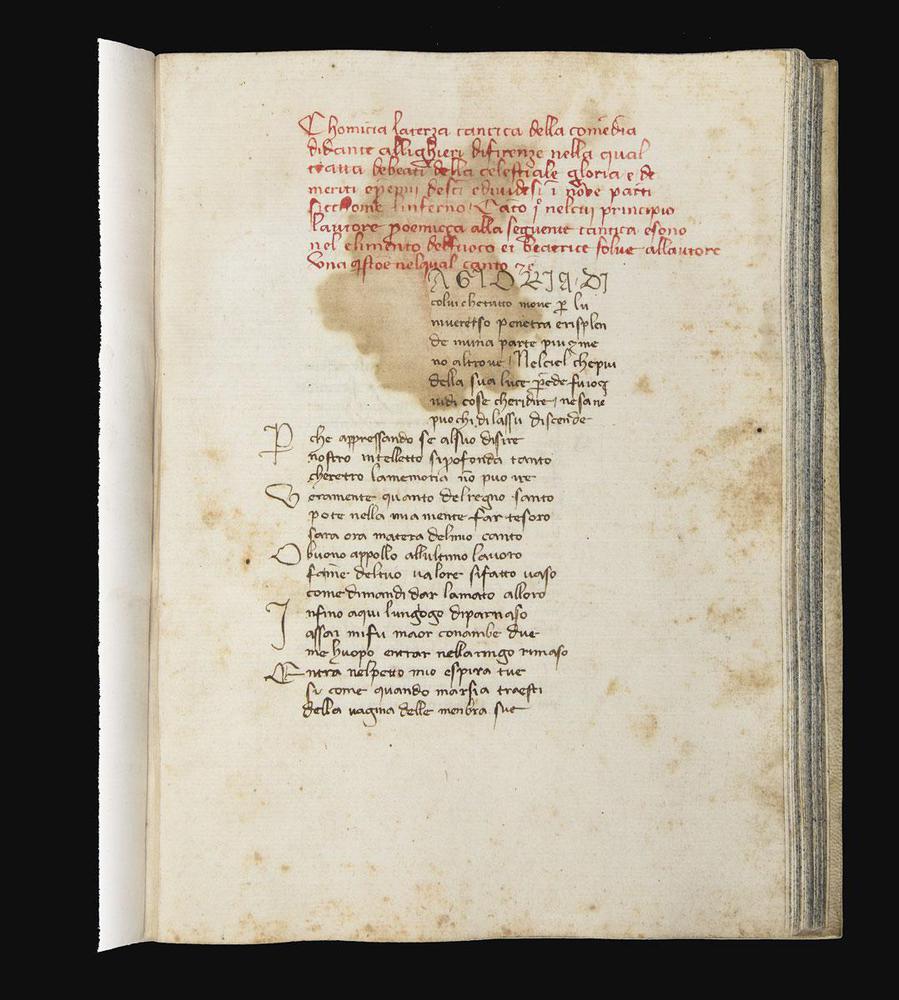 Chomicia laterza cantica della comedia
didante allighieri difirenze nella qual
tratta debeati della celestiale gloria e de
meriti e premii desci edividesi ī nove parti
siccome linferno Cāto j° nelcui principio
lautore proemicça alla seguente cantica esono
nel elimento delfuoco et beatrice solve allautore
una q̄stoē nelqual canto
LA GLORIA DI
colui chetutto move p̄ lu
niverso penetra erisplen
de inuna parte piu ꝯme
no altrove Nelciel chepiu
della sua luce prēde fuiog
vidi cose cheridire nesane
puo chi dilassu discende
P che appressando se alsuo disire
nostro intelletto siprofonda tanto
cheretro lamemoria nō puo ire
Veramente quanto delregno santo
pote nella mia mente far tesoro
sara ora matera delmio canto
O buono appollo allultimo lavoro
famē deltuo valore sifatto vaso
come dimandi dar lamato alloro
Infino aqui lungogo diparnaso
assai mi fu maor conambe due
me huopo entrar nellaringo rimaso
Entra nelpetto mio espira tue
si come quando marsia traesti
della vagina delle menbra sue